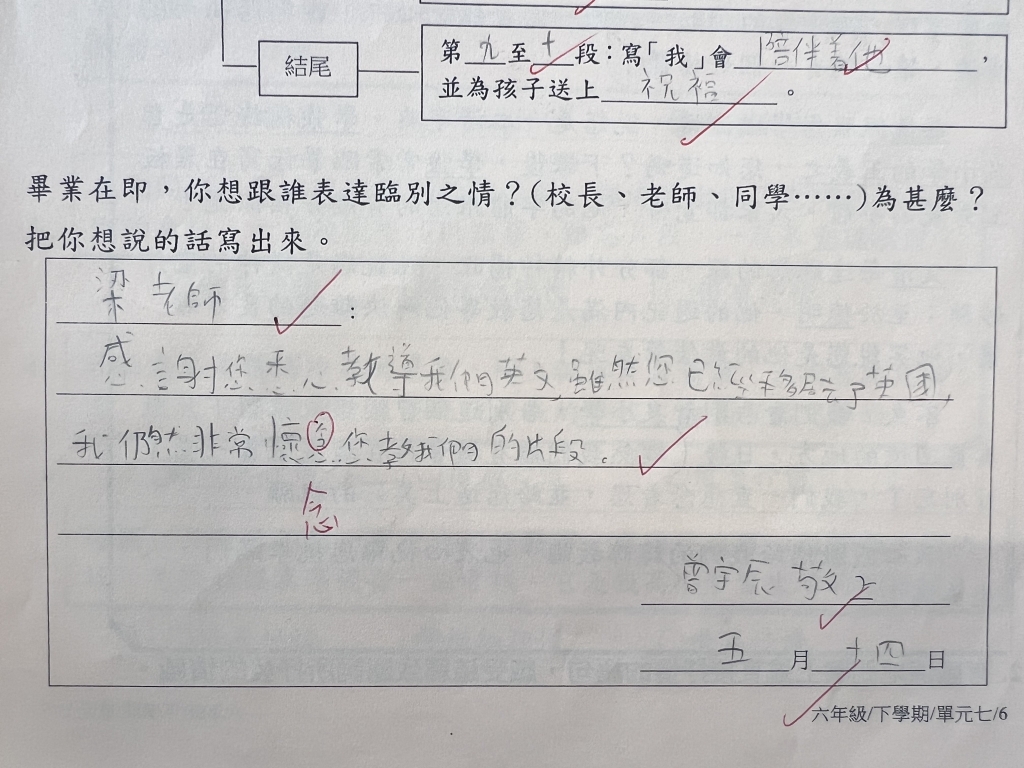 結尾
第九至十段：寫「我」會陪伴着他，
並為孩子送上祝福。
畢業在即，你想跟誰表達臨別之情？(校長、老師、同學……)為甚麼？
把你想說的話寫出來。
梁老師：
感謝您悉心教導我們英文，雖然您已經移居去了英國，
我們仍然非常懷您教我們的片段。
念
曾宇辰 敬上
五月十四日
六年級/下學期/單元七/6